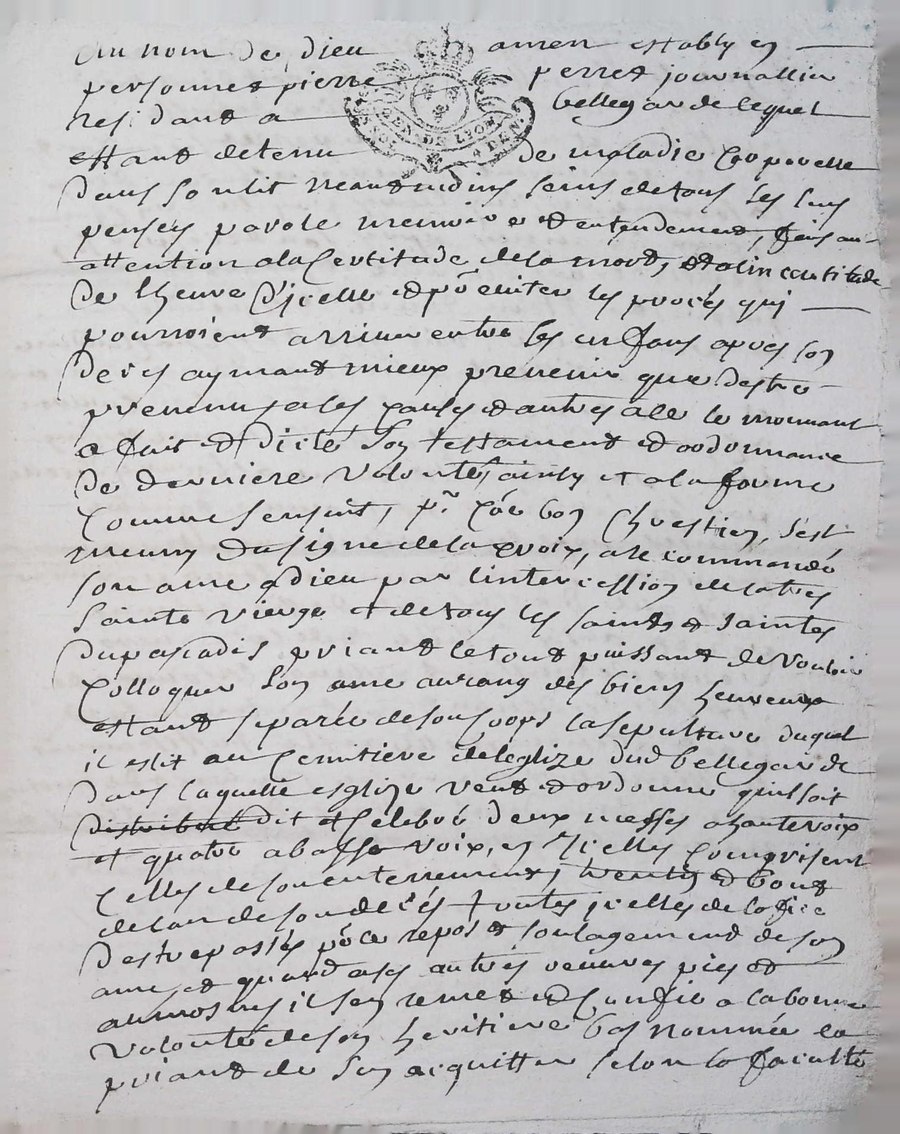 Au nom de dieu amen estably en
personne pierre perret journallier
residant a bellegarde lequel
estant detenu de maladie corporelle
dans son lit neantmoins sains de tous ses sens
pensees parole memoire et entendement, faisant
attention a la certitude de la mort, et a lincertitude
de lheure dicelle et por eviter les procés qui
pourroient arriver entre les enfans apres son
deces aymant mieux prevenir que destre
prevenu a les causes et autres a le mouvant
a fait et dicté son testament et ordonnance
de derniere volonté ainsy et a la forme
comme sensuit, pr. coe bon chrestien, sest
muny du signe de la croix, a recommandé
son ame a dieu par lintercession de la tres
sainte vierge et de tous les saints et saintes
du paradis priant le tout puissant de vouloir
colloquer son ame au rang des biens heureux
estant separée de son corps la sepulture duquel
il eslit au cemitiere de leglize dud bellegarde
dans laquelle esglize veut et ordonne quil soit
distribué dit et celebré deux messes a haute voix
et quatre a basse voix, en icelles comprises
celles de son enterrement, et bout
de lan de son decés toutes icelles de loffice
des trepassés pour le repos et soulagement de son
ame, et quand a ses autres oeuvres pies et
aumosnes il sen remet et confie a la bonne
volonté de son heritiere bas nommée la
priant de sen acquitter selon la faculté
GEN. DE LYON